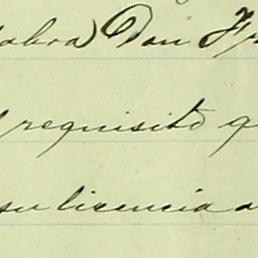 labra Don Fr
requisito q
su licencia a